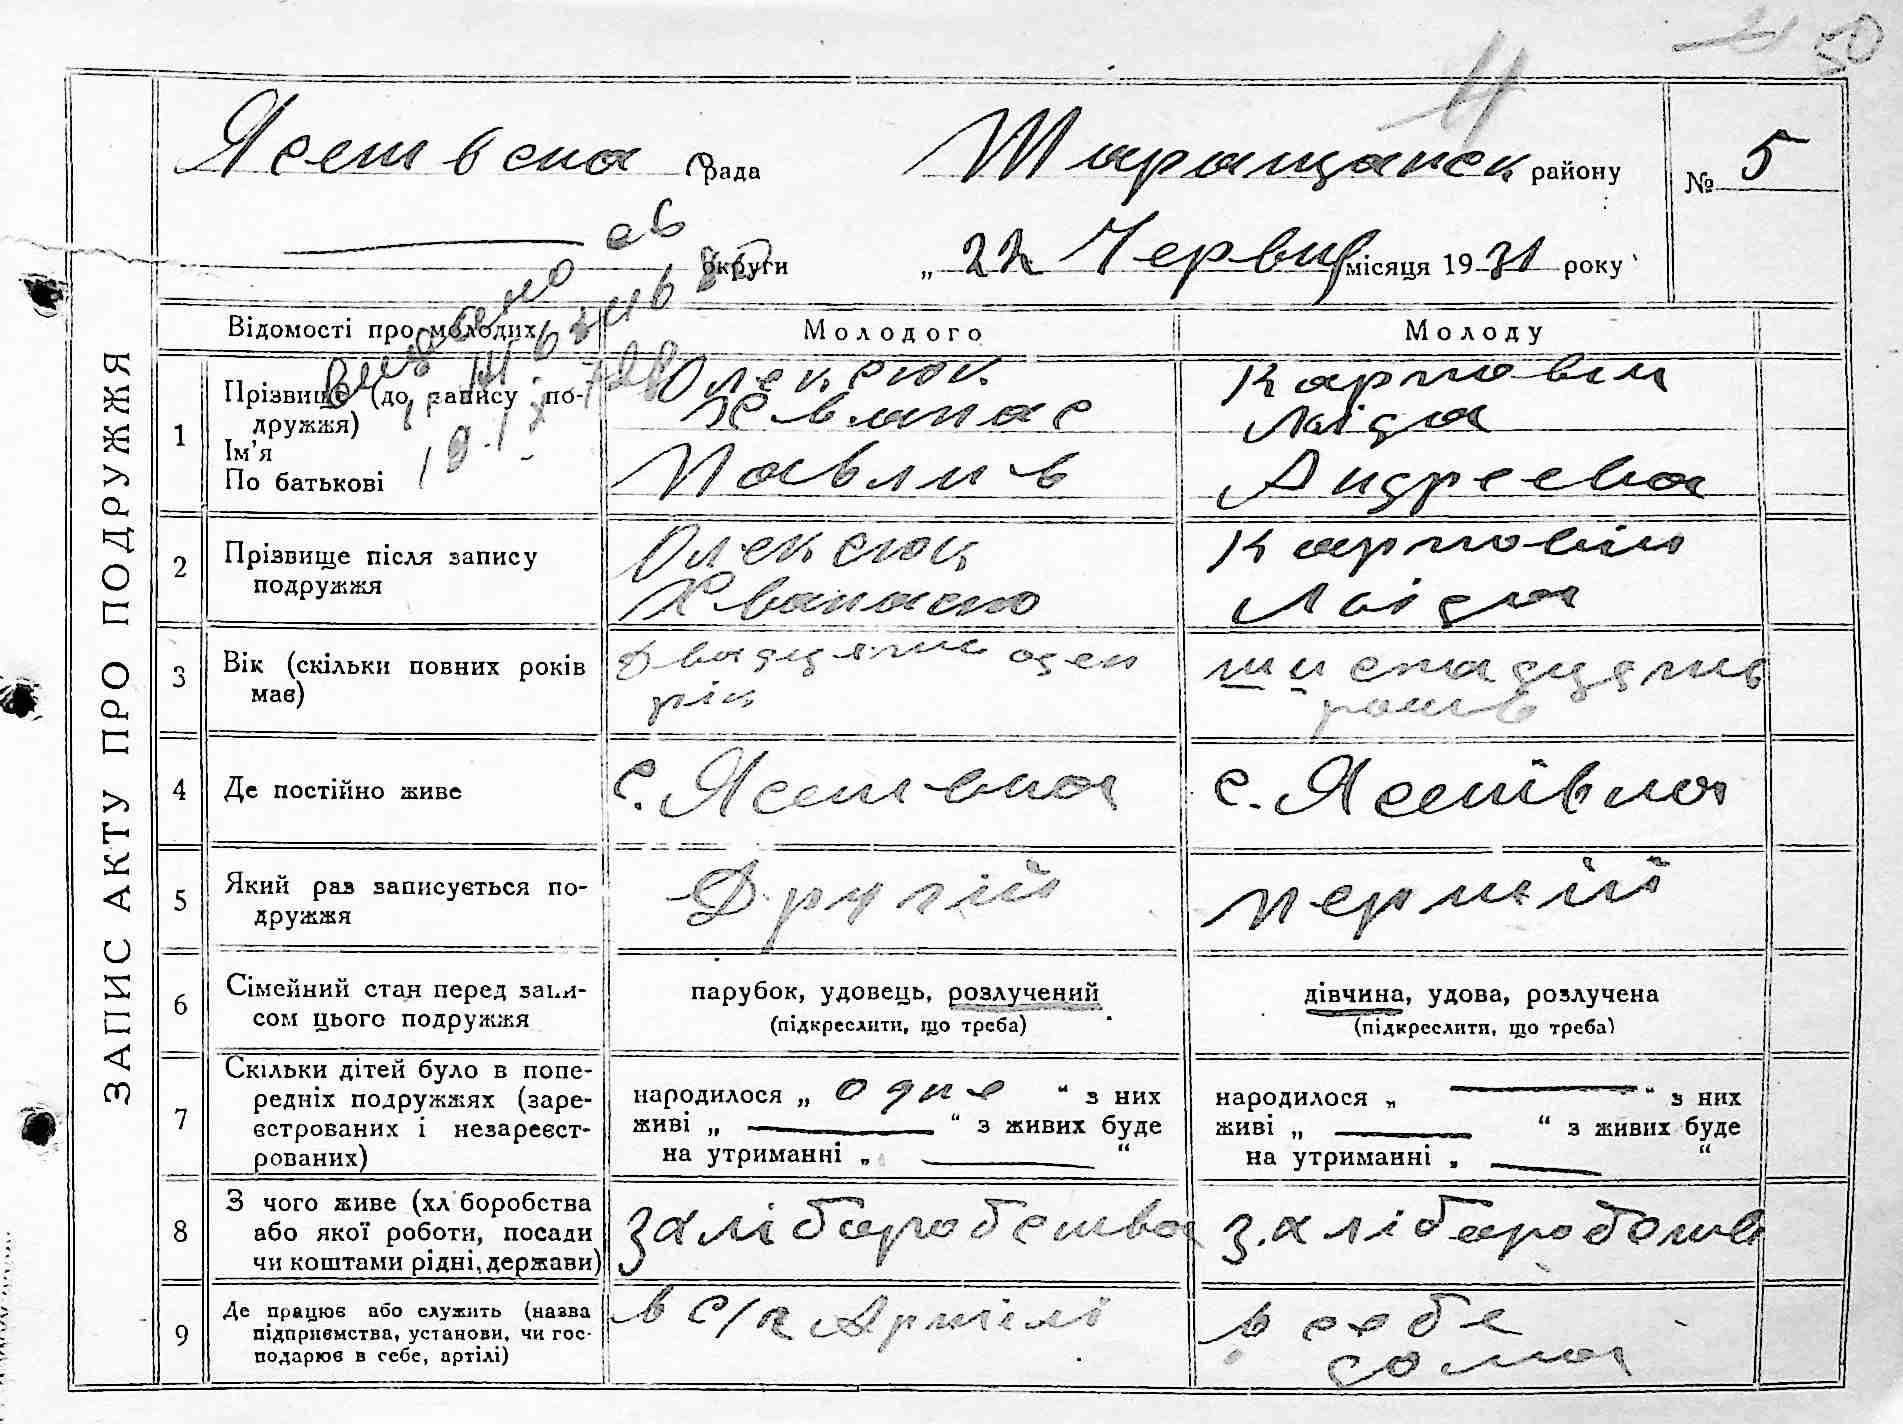 50
Ясетвска Рада Таращанск району № 5
округи „ 22 Червня місяця 1931 року
ЗАПИС АКТУ ПРО ПОДРУЖЖЯ
Відомості про молодих Молодого Молоду
видано
1 Прізвище (до запису по-
дружжя)
Ім'я
По батькові
Олексюк
Хванас
Павлив
Карповіч
Ліда
Андреевна
2 Прізвище після запису
подружжя
Олексюк
Карповіч
Ліда
3 Вік (скільки повних років
має)
Двадцять оден
рік
шиснадцять
років
4 Де постійно живе с. Ясетвка с. Ясетівка
5 Який раз записується по-
дружжя
Другій первий
6 Сімейний стан перед запи-
сом цього подружжя
парубок, удовець, розлучений
(підкреслити, що треба)
дівчина, удова, розлучена
(підкреслити, що треба)
7 Скільки дітей було в попе-
редніх подружжях (заре-
єстрованих і незареєст-
рованих)
народилося „ одне “ з них
живі „ “ з живих буде
на утриманні „ “
народилося „ “ з них
живі „ “ з живих буде
на утриманні „ “
8 З чого живе (хл боробства
або якої роботи, посади
чи коштами рідні, держави)
з хлібаробства з. хлібаробств
9 Де працює або служить (назва
підприємства, установи, чи гос-
подарює в себе, артілі)
в с/г Артілі
в себе
дома